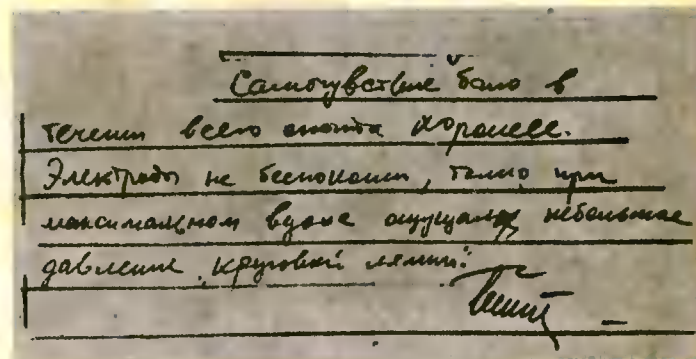 Самочувствие было в
течении всего опыта хорошее.
Электроды не беспокоили, только при
максимальном вдохе ощущал небольшое
давление круговой лямки.